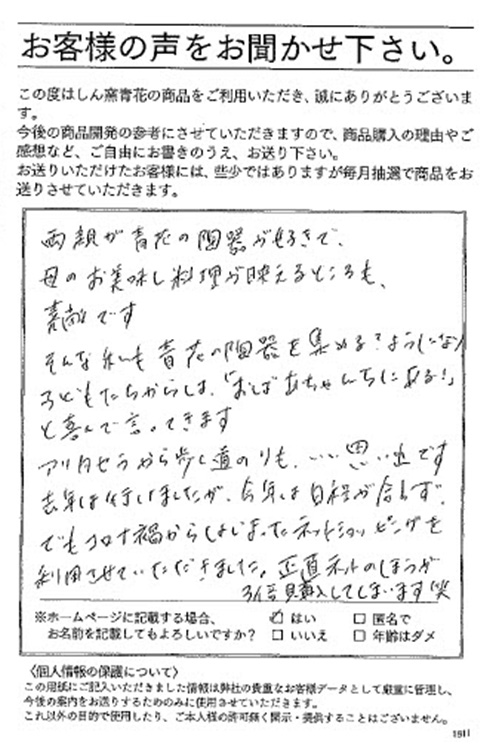 お客様の声をお聞かせ下さい。
この度はしん窯青花の商品をご利用いただき、誠にありがとうございま
す。
今後の商品開発の参考にさせていただきますので、商品購入の理由やご
感想など、ご自由にお書きのうえ、お送り下さい。
お送りいただけたお客様には、些少ではありますが毎月抽選で商品をお
送りさせていただきます。
両親が青花の陶器が好きで、
母のお美味し料理が映えるところも、
素敵です
そんな私も青花の陶器を集める?ようになり
子どもたちからは、「おばあちゃんちにある!」
と喜んで言ってきます
アリタセラから歩く道のりも、いい思い出です
去年は行けましたが、今年は日程が合わず、
でもコロナ禍からはじまったネットショッピングを
利用させていただきました。正直ネットのほうが
3倍購入してしまいます(笑
※ホームページに記載する場合、 ☑ はい □ 匿名で
お名前を記載してもよろしいですか? □ いいえ □ 年齢はダメ
〈個人情報の保護について〉
この用紙にご記入いただきました情報は弊社の貴重なお客様データとして厳重に管理し、
今後の案内をお送りするためのみに使用させていただきます。
これ以外の目的で使用したり、ご本人様の許可無く開示・提供することはございません。
1911